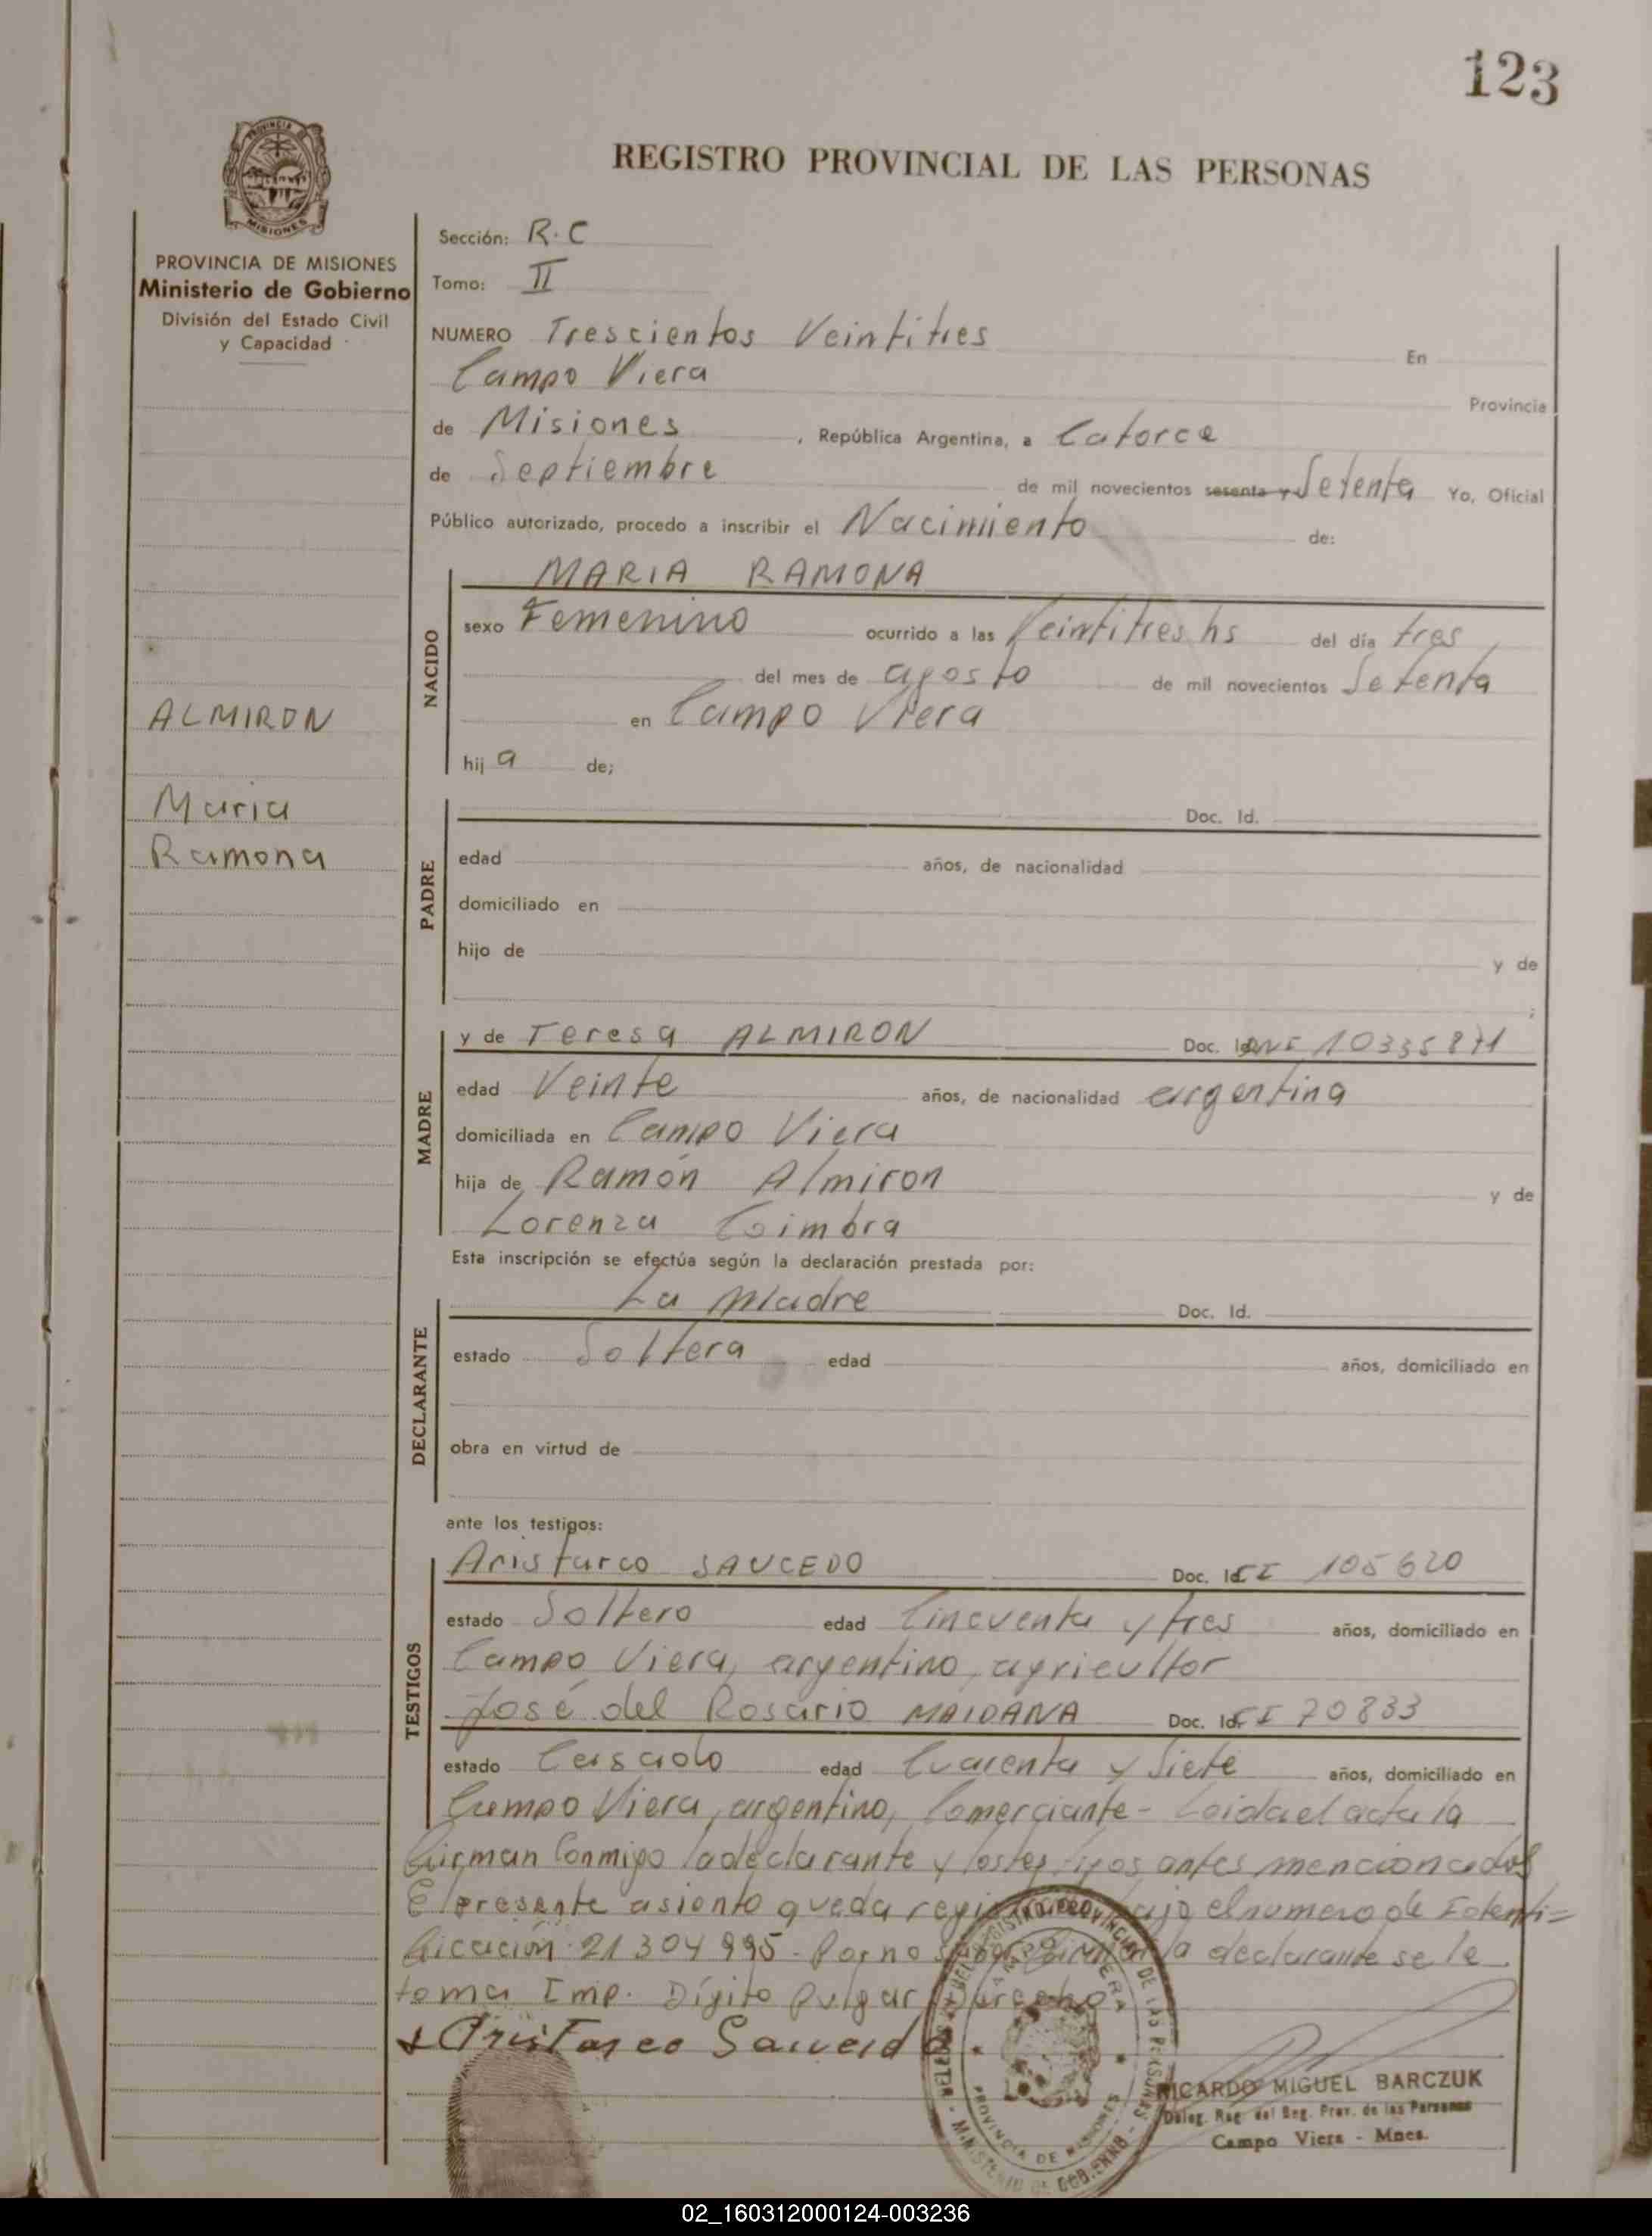 123
REGISTRO PROVINCIAL DE LAS PERSONAS
PROVINCIA DE MISIONES
Ministerio de Gobierno
División del Estado Civil
y Capacidad
ALMIRON
Maria
Ramona
Sección: R.C
Tomo: II
NUMERO Trescientos Veintitres En
Campo Viera Provincia
de Misiones , República Argentina, a Catorce
de Septiembre de mil novecientos sesenta y Setenta Yo, Oficial
Público autorizado, procedo a inscribir el Nacimiento de:
NACIDO
MARIA RAMONA
sexo Femenino ocurrido a las Veintitres hs del día tres
del mes de agosto de mil novecientos Setenta
en Campo Viera
hij a de;
PADRE
Doc. Id.
edad años, de nacionalidad
domiciliado en
hijo de y de
;
MADRE
y de Teresa ALMIRON Doc. Id. DNI 10335871
edad Veinte años, de nacionalidad argentina
domiciliada en Campo Viera
hija de Ramón Almiron y de
Lorenza Coimbra
Esta inscripción se efectúa según la declaración prestada por:
DECLARANTE
La Madre Doc. Id.
estado Soltera edad años, domiciliado en
obra en virtud de
ante los testigos:
TESTIGOS
Aristarco SAUCEDO Doc. Id. CI 105620
estado Soltero edad Cincuenta y tres años, domiciliado en
Campo Viera, argentino, agricultor
José del Rosario MAIDANA Doc. Id. CI 70833
estado Casado edad Cuarenta y Siete años, domiciliado en
Campo Viera, argentino, Comerciante - Leida el acta la
firman Conmigo la declarante y los testigos antes mencionados
El presente asiento queda bajo el numero de Identi=
ficación 21304995. Por no la declarante se le
toma Imp. Dígito Pulgar Derecho
Aristarco Saucedo
CAMPO VIERA
PROVINCIA DE MISIONES
RICARDO MIGUEL BARCZUK
Deleg. Rug. del Reg. Prov. de las Personas
Campo Viera - Mnes.
02_160312000124-003236